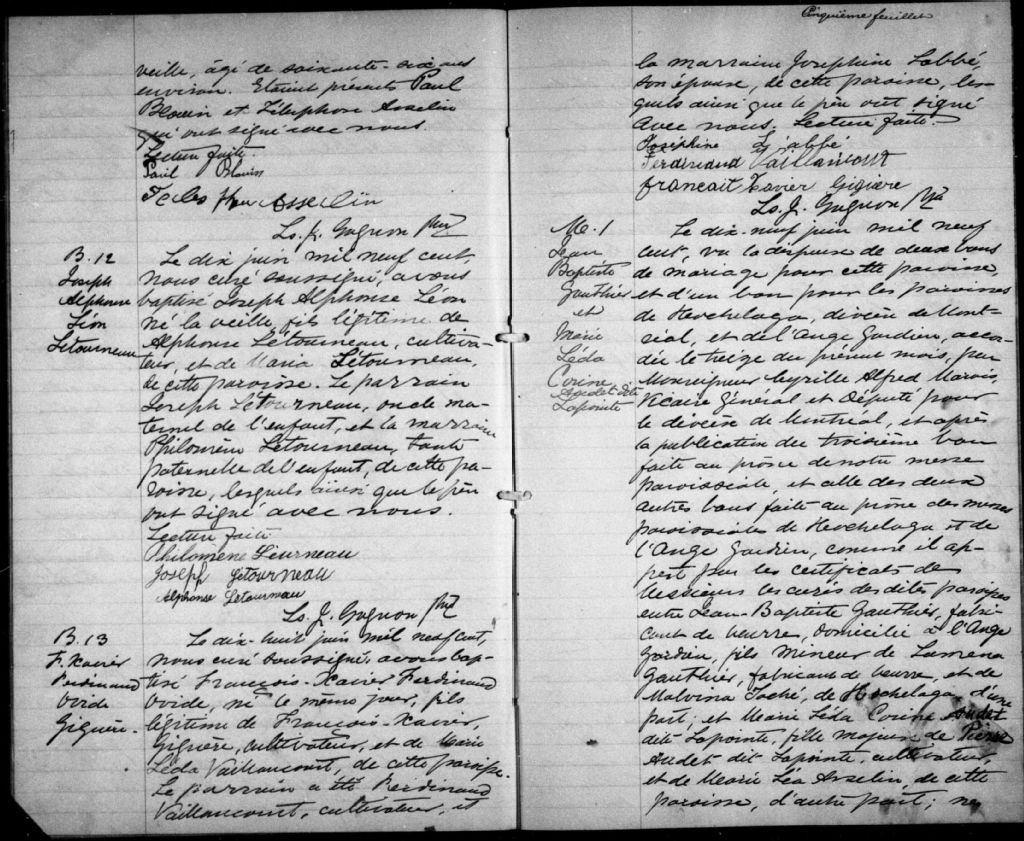 Cinquième feuillet
veille, âgé de soixante-six ans
environ. Etaient présents Paul
Blouin et Télesphore Asselin
qui ont signé avec nous.
Lecture faite.
Paul Blouin
Asselin
Ls. J. Gagnon Ptre
B. 12
Joseph
Alphonse
Léon
Létourneau
Le dix juin mil neuf cent,
nous curé soussigné, avons
baptisé Joseph Alphonse Léon
né la veille, fils légitime de
Alphonse Létourneau, cultiva-
teur, et de Maria Létourneau,
de cette paroisse. Le parrain
Joseph Létourneau, oncle ma-
ternel de l'enfant, et la marraine
Philomène Létourneau, tante
paternelle de l'enfant, de cette pa-
roisse, lesquels ainsi que le père
ont signé avec nous.
Lecture faite
Philomène Léurneau
Joseph Letourneau
Alphonse Letourneau
Ls. J. Gagnon Ptre
B. 13
F. Xavier
Ferdinand
Ovide
Giguère.
Le dix-huit juin mil neuf cent,
nous curé soussigné, avons bap-
tisé François-Xavier Ferdinand
Ovide, né le même jour, fils
légitime de François-Xavier
Giguère, cultivateur, et de Marie
Léda Vaillancourt, de cette paroisse.
Le parrain a été Ferdinand
Vaillancourt, cultivateur, et
la marraine Josephine Labbé,
son épouse, de cette paroisse, les-
quels ainsi que le père ont signé
avec nous. Lecture faite.
Joséphine Labbé
Ferdinand Vaillancourt
francait Xavier Gigiere
Ls. J. Gagnon Ptre
M. 1
Jean
Baptiste
Gauthier
et
Marie
Léda
Corine
Audet dit
Lapointe
Le dix-neuf juin mil neuf
cent, vu la dispense de deux bans
de mariage pour cette paroisse,
et d'un ban pour les paroisses
de Hochelaga, diocèse de Mont-
réal, et de l'Ange Gardien, accor-
dée le treize du présent mois, par
Monseigneur Cyrille Alfred Marois
Vicaire Général et Député pour
le diocèse de Montréal, et après
la publication du troisième ban
faite au prône de notre messe
paroissiale, et celle des deux
autres bans faite au prône des messes
paroissiale de Hochelaga et de
l'Ange Gardien, comme il ap-
pert par les certificats de
Messieurs les curés des dites paroisses
entre Jean-Baptiste Gauthier, fabri-
cant de beurre, domicilié à l'Ange
Gardien, fils mineur de
Gauthier, fabricant de beurre, et de
Malvina Taché, de Hochelaga, d'une
part; et Marie Léda Corine Audet
dit Lapointe, fille majeure de Pierre
Audet dit Lapointe, cultivateur,
et de Marie Léa Asselin, de cette
paroisse, d'autre part; ne